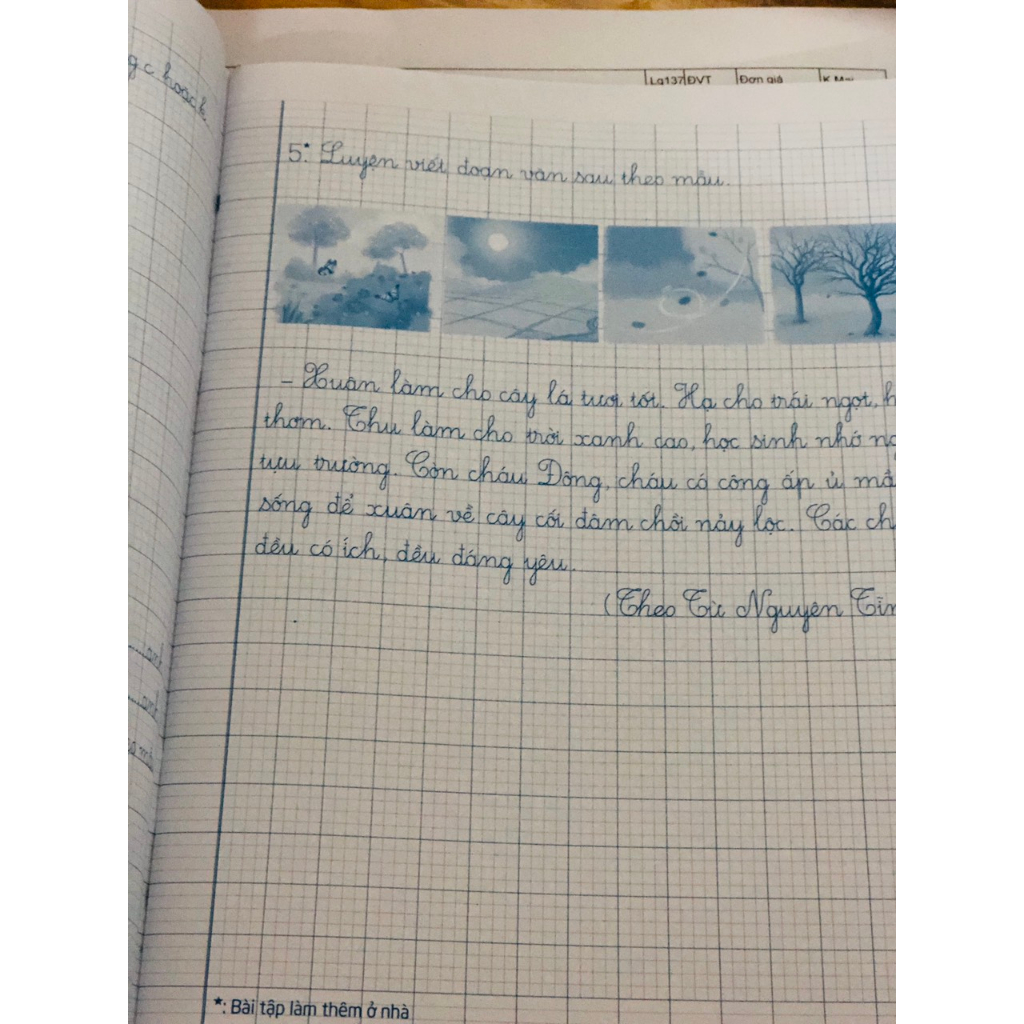 gc hoạch
Lg137 ĐVT Đơn giá
5*. Luyện viết đoạn văn sau theo mẫu.
- Xuân làm cho cây lá tươi tốt. Hạ cho trái ngọt, h
thơm. Thu làm cho trời xanh cao, học sinh nhớ ng
tựu trường. Còn cháu Đông, cháu có công ấp ủ mầ
sống để xuân về cây cối đâm chồi nảy lộc. Các ch
đều có ích, đều đáng yêu.
(Theo Từ Nguyên Tĩn
*: Bài tập làm thêm ở nhà